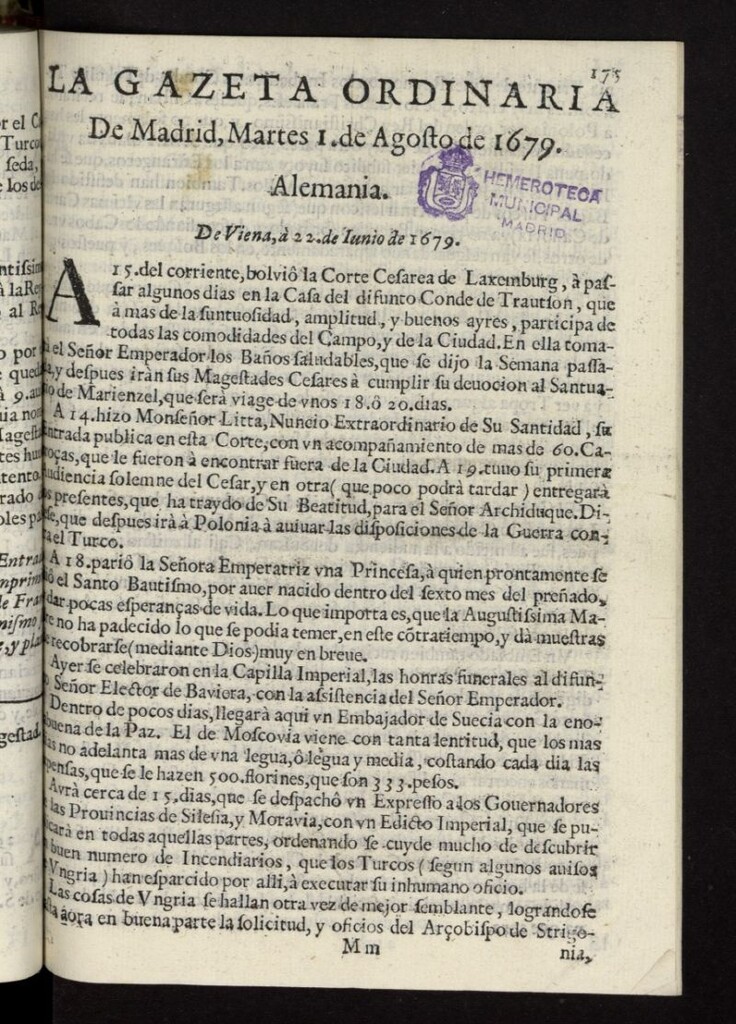 175
LA GAZETA ORDINARIA
De Madrid, Martes 1. de Agoſto de 1679.
HEMEROTECA
MUNICIPAL
MADRID
Alemania.
De Viena, à 22. de Iunio de 1679.
A 15. del corriente, bolviô la Corte Ceſarea de Laxemburg, à paſ-
ſar algunos dias en la Caſa del difunto Conde de Trautſon, que
à mas de la ſuntuoſidad, amplitud, y buenos ayres, participa de
todas las comodidades del Campo, y de la Ciudad. En ella toma-
el Señor Emperador los Baños ſaludables, que ſe dijo la Semana paſſa-
, y deſpues iràn ſus Mageſtades Ceſares à cumplir ſu deuocion al Santua-
o de Marienzel, que ſerà viage de vnos 18. ô 20. dias.
A 14. hizo Monſeñor Litta, Nuncio Extraordinario de Su Santidad, ſu
ntrada publica en eſta Corte, con vn acompañamiento de mas de 60. Ca-
oças, que le fueron à encontrar fuera de la Ciudad. A 19. tuuo ſu primera
udiencia ſolemne del Ceſar, y en otra (que poco podrà tardar) entregarà
s preſentes, que ha traydo de Su Beatitud, para el Señor Archiduque. Di-
ſe, que deſpues irà à Polonia à auiuar las diſpoſiciones de la Guerra con-
a el Turco.
A 18. pariô la Señora Emperatriz vna Princeſa, à quien prontamente ſe
ô el Santo Bautiſmo, por auer nacido dentro del ſexto mes del preñado,
dar pocas eſperanças de vida. Lo que importa es, que la Auguſtiſsima Ma-
e no ha padecido lo que ſe podia temer, en eſte cõtratiempo, y dà mueſtras
recobrarſe (mediante Dios) muy en breue.
Ayer ſe celebraron en la Capilla Imperial, las honras funerales al difun-
o Señor Elector de Baviera, con la aſsiſtencia del Señor Emperador.
Dentro de pocos dias, llegarà aqui vn Embajador de Suecia con la eno-
buena de la Paz. El de Moſcovia viene con tanta lentitud, que los mas
as no adelanta mas de vna legua, ô legua y media, coſtando cada dia las
penſas, que ſe le hazen 500. florines, que ſon 333. peſos.
Avrà cerca de 15. dias, que ſe deſpachô vn Expreſſo a los Gouernadores
las Prouincias de Sileſia, y Moravia, con vn Edicto Imperial, que ſe pu-
icarà en todas aquellas partes, ordenando ſe cuyde mucho de deſcubrir
buen numero de Incendiarios, que los Turcos (ſegun algunos auiſos
e Vngria) han eſparcido por alli, à executar ſu inhumano oficio.
Las coſas de Vngria ſe hallan otra vez de mejor ſemblante, lograndoſe
aora en buena parte la ſolicitud, y oficios del Arçobiſpo de Strigo-
M m
nia,